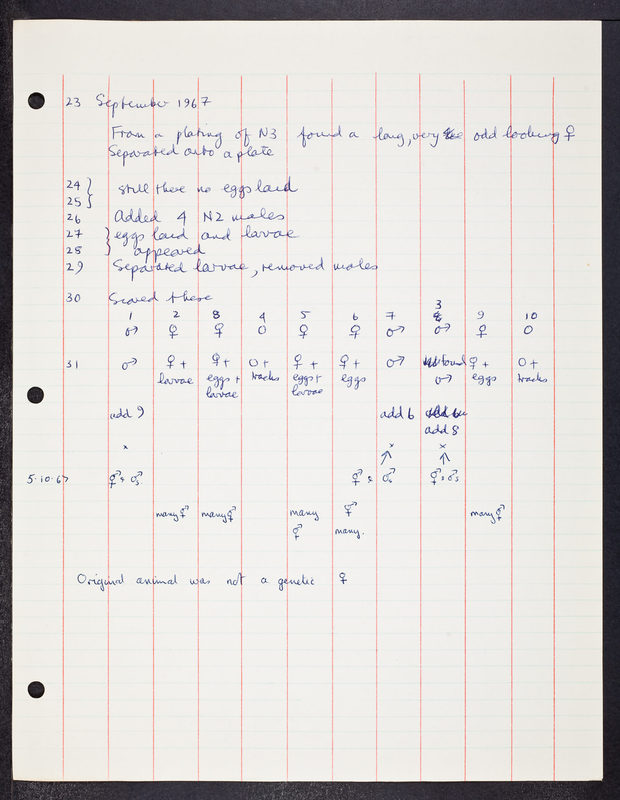 23 September 1967
From a plating of N3 found a long, very odd looking ♀
Separated onto a plate
24 }
25 } still there no eggs laid
26 Added 4 N2 males
27 } eggs laid and larvae
28 } appeared
29 Separated larvae, removed males
30 Scored these
3
1 2 8 4 5 6 7 9 10
♂ ♀ ♀ O ♀ ♀ ♂ ♂ ♀ O
31 ♂ ♀ + ♀ + O + ♀ + ♀ + ♂ found ♀ + O +
larvae eggs + tracks eggs + eggs ♂ eggs tracks
larvae larvae
add 9 add 6
add 8
x x x
↑ ↑
5.10.67 ⚥ & ♂s ⚥ & ♂s ⚥ & ♂s
many ⚥ many ⚥ many ⚥ many ⚥
⚥ many.
Original animal was not a genetic ♀